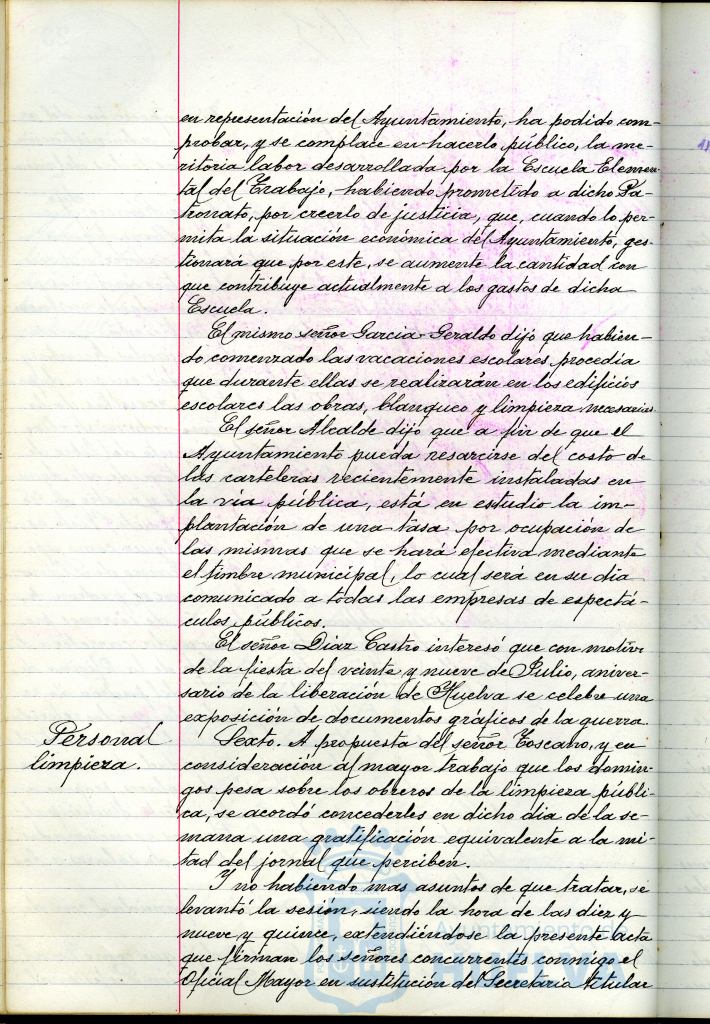 en representación del Ayuntamiento, ha podido com-
probar, y se complace en hacerlo público, la me-
ritoria labor desarrollada por la Escuela Elemen-
tal del Trabajo, habiendo prometido a dicho Pa-
tronato, por creerlo de justicia, que, cuando lo per-
mita la situación económica del Ayuntamiento, ges-
tionará que por este, se aumente la cantidad con
que contribuye actualmente a los gastos de dicha
Escuela.
El mismo señor Garcia-Geraldo dijo que habien-
do comenzado las vacaciones escolares procedia
que durante ellas se realizarán en los edificios
escolares las obras, blanqueo y limpieza necesarias
El señor Alcalde dijo que a fin de que el
Ayuntamiento pueda resarcirse del costo de
las carteleras recientemente instaladas en
la via pública, está en estudio la im-
plantación de una tasa por ocupación de
las mismas que se hará efectiva mediante
el timbre municipal, lo cual será en su dia
comunicado a todas las empresas de espectá-
culos públicos.
El señor Diaz Castro interesó que con motivo
de la fiesta del veinte y nueve de Julio, aniver-
sario de la liberación de Huelva se celebre una
exposición de documentos gráficos de la guerra.
Personal
limpieza.
Sexto. A propuesta del señor Toscano, y en
consideración al mayor trabajo que los domin-
gos pesa sobre los obreros de la limpieza públi-
ca, se acordó concederles en dicho dia de la se-
mana una gratificación equivalente a la mi-
tad del jornal que perciben.
Y no habiendo mas asuntos de que tratar, se
levantó la sesión, siendo la hora de las diez y
nueve y quince, extendiéndose la presente acta
que firman los señores concurrentes conmigo el
Oficial Mayor en sustitución del Secretario titular
Ayuntamiento de
HUELVA